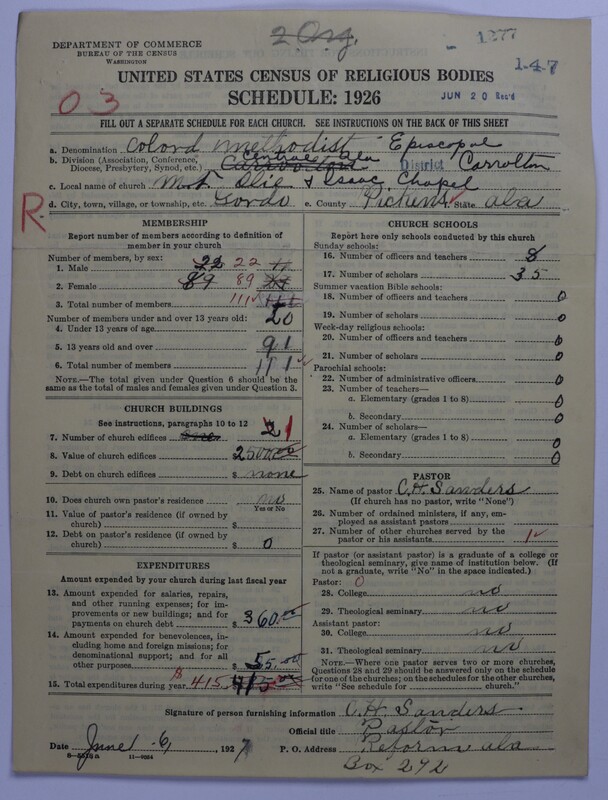 2 Org.
1277
147
DEPARTMENT OF COMMERCE
BUREAU OF THE CENSUS
WASHINGTON
UNITED STATES CENSUS OF RELIGIOUS BODIES
SCHEDULE: 1926
03
JUN 20 Rec'd
FILL OUT A SEPARATE SCHEDULE FOR EACH CHURCH. SEE INSTRUCTIONS ON THE BACK OF THIS SHEET
a. Denomination Colord Methodist Episcopal
b. Division (Association, Conference, Diocese, Presbytery, Synod, etc.) Central Ala District Carrolton
c. Local name of church Mt. Olie & Isaac Chapel
d. City, town, village, or township, etc. Gordo e. County Pickens, State Ala
R
MEMBERSHIP
Report number of members according to definition of member in your church
Number of members, by sex:
1. Male 22 22 11
2. Female 89 89
3. Total number of members 111 111
Number of members under and over 13 years old:
4. Under 13 years of age 20
5. 13 years old and over 91
6. Total number of members 111
NOTE.—The total given under Question 6 should be the same as the total of males and females given under Question 3.
CHURCH BUILDINGS
See instructions, paragraphs 10 to 12
7. Number of church edifices one 2 1
8. Value of church edifices $ 2500.00
9. Debt on church edifices $ none
10. Does church own pastor's residence no
Yes or No
11. Value of pastor's residence (if owned by church) $
12. Debt on pastor's residence (if owned by church) $ 0
EXPENDITURES
Amount expended by your church during last fiscal year
13. Amount expended for salaries, repairs, and other running expenses; for improvements or new buildings; and for payments on church debt $ 360.00
14. Amount expended for benevolences, including home and foreign missions; for denominational support; and for all other purposes $ 55.00
15. Total expenditures during year $ 415 415.00
CHURCH SCHOOLS
Report here only schools conducted by this church
Sunday schools:
16. Number of officers and teachers 8
17. Number of scholars 35
Summer vacation Bible schools:
18. Number of officers and teachers 0
19. Number of scholars 0
Week-day religious schools:
20. Number of officers and teachers 0
21. Number of scholars 0
Parochial schools:
22. Number of administrative officers 0
23. Number of teachers—
a. Elementary (grades 1 to 8) 0
b. Secondary 0
24. Number of scholars—
a. Elementary (grades 1 to 8) 0
b. Secondary 0
PASTOR
25. Name of pastor C. H. Sanders
(If church has no pastor, write "None")
26. Number of ordained ministers, if any, employed as assistant pastors
27. Number of other churches served by the pastor or his assistants 1
If pastor (or assistant pastor) is a graduate of a college or theological seminary, give name of institution below. (If not a graduate, write "No" in the space indicated.)
Pastor: 0
28. College no
29. Theological seminary no
Assistant pastor:
30. College no
31. Theological seminary no
NOTE.—Where one pastor serves two or more churches, Questions 28 and 29 should be answered only on the schedule for one of the churches; on the schedules for the other churches, write "See schedule for church."
Signature of person furnishing information C. H. Sanders
Official title Pastor
Date June 6, 1927
P. O. Address Reform Ala
Box 292